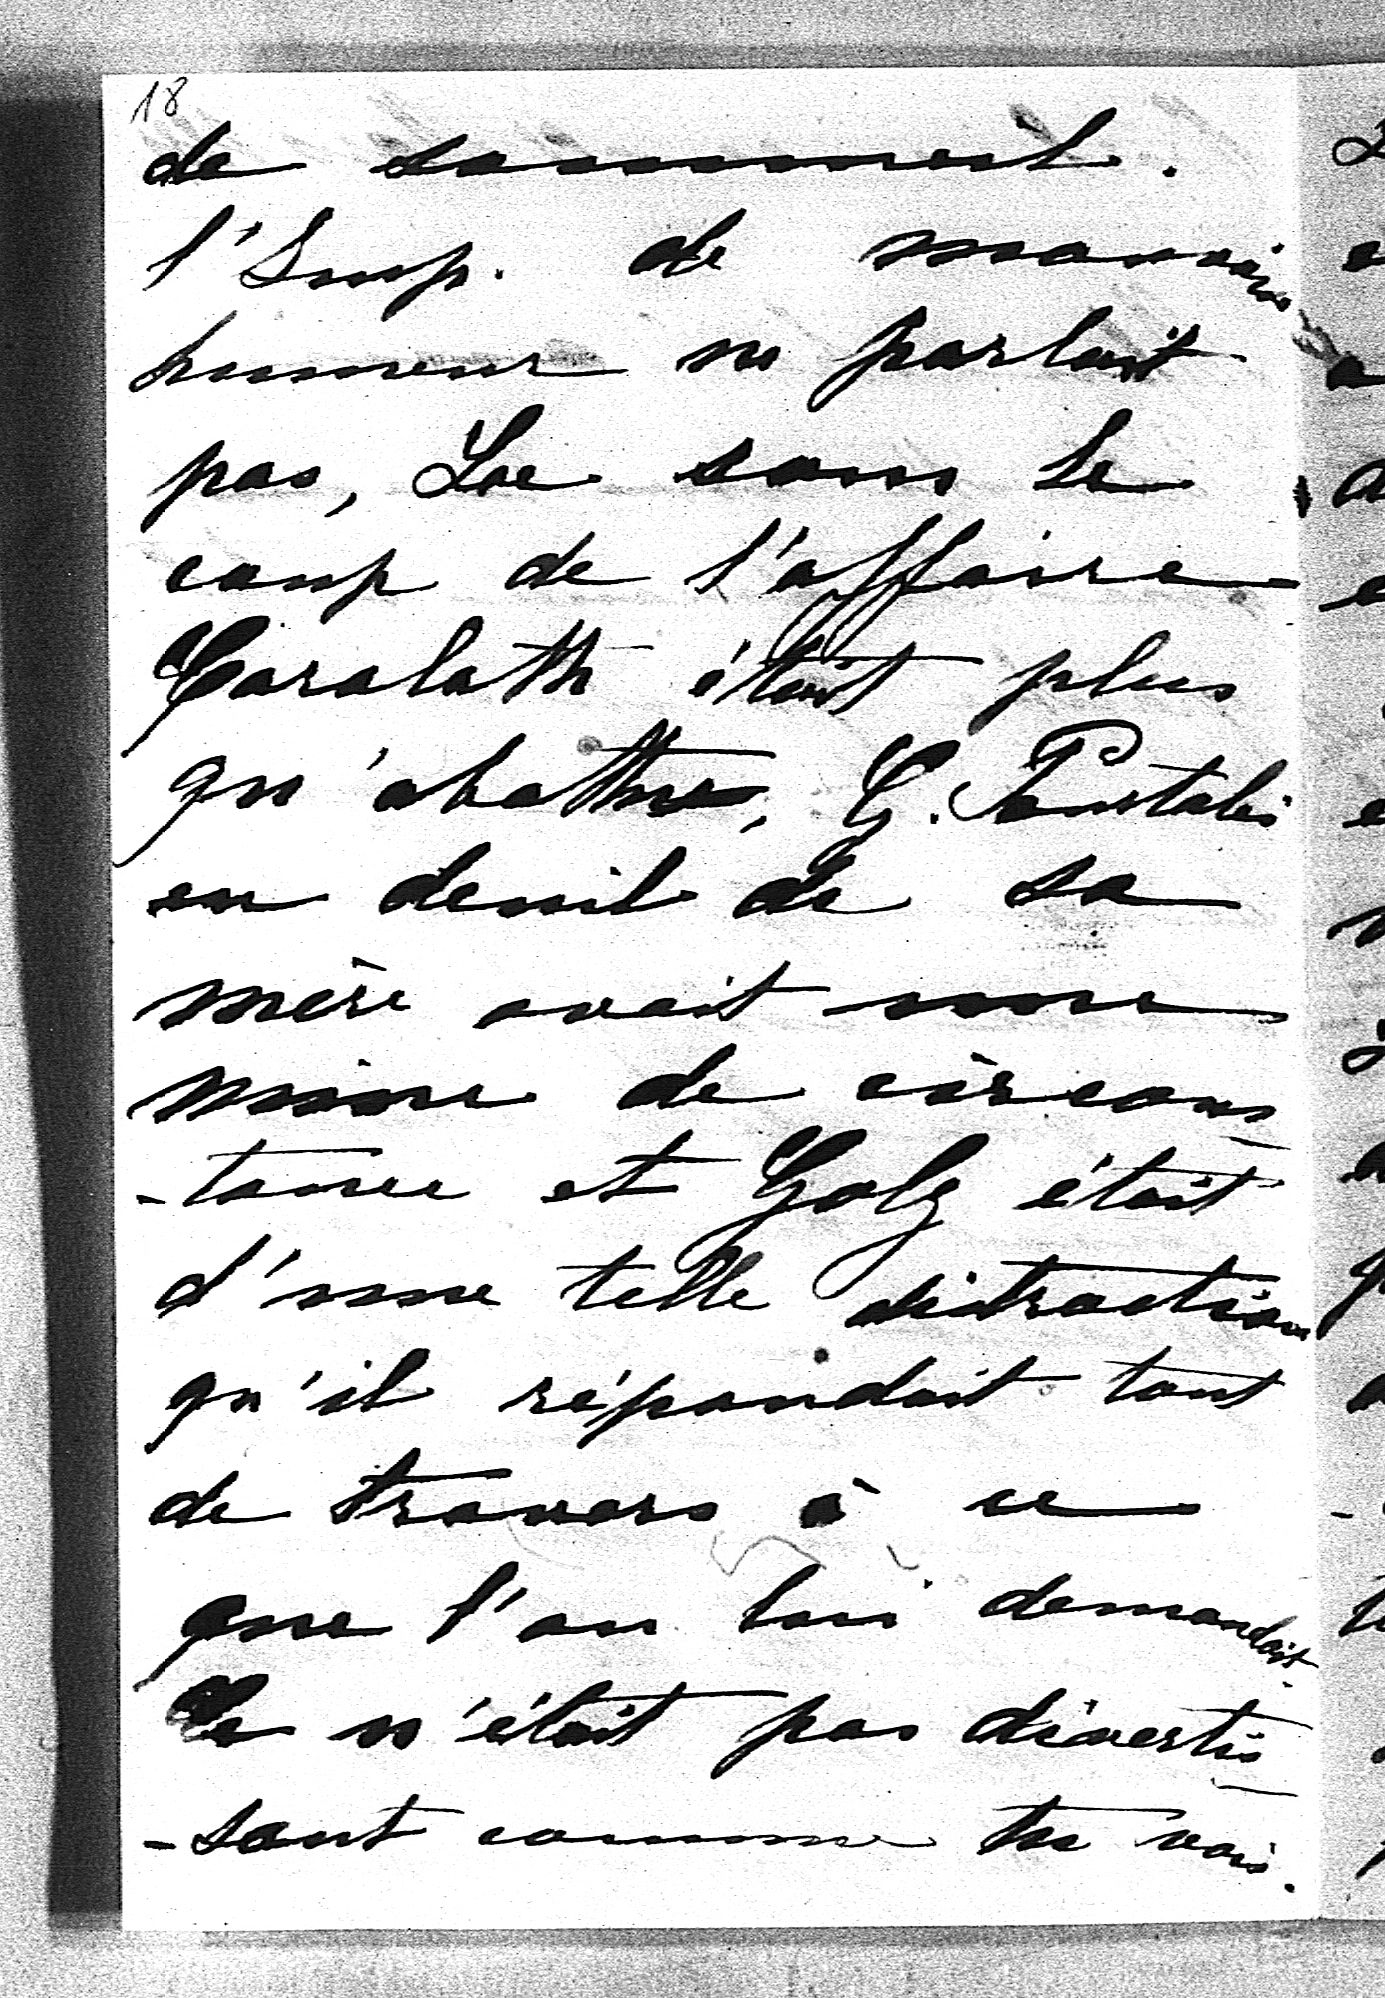 18
de sommeil.
l'Imp. de mauvaise
humeur ne parlait
pas, Loe sous le
coup de l'affaire
Caralath était plus
qu'abattue, G. Pourtalès
en deuil de sa
mère avait une
mine de circons
-tance et Golz était
d'une telle distraction
qu'il répondait tout
de travers à ce
que l'on lui demandait.
Ce n'était pas divertis
-sant comme tu vois.